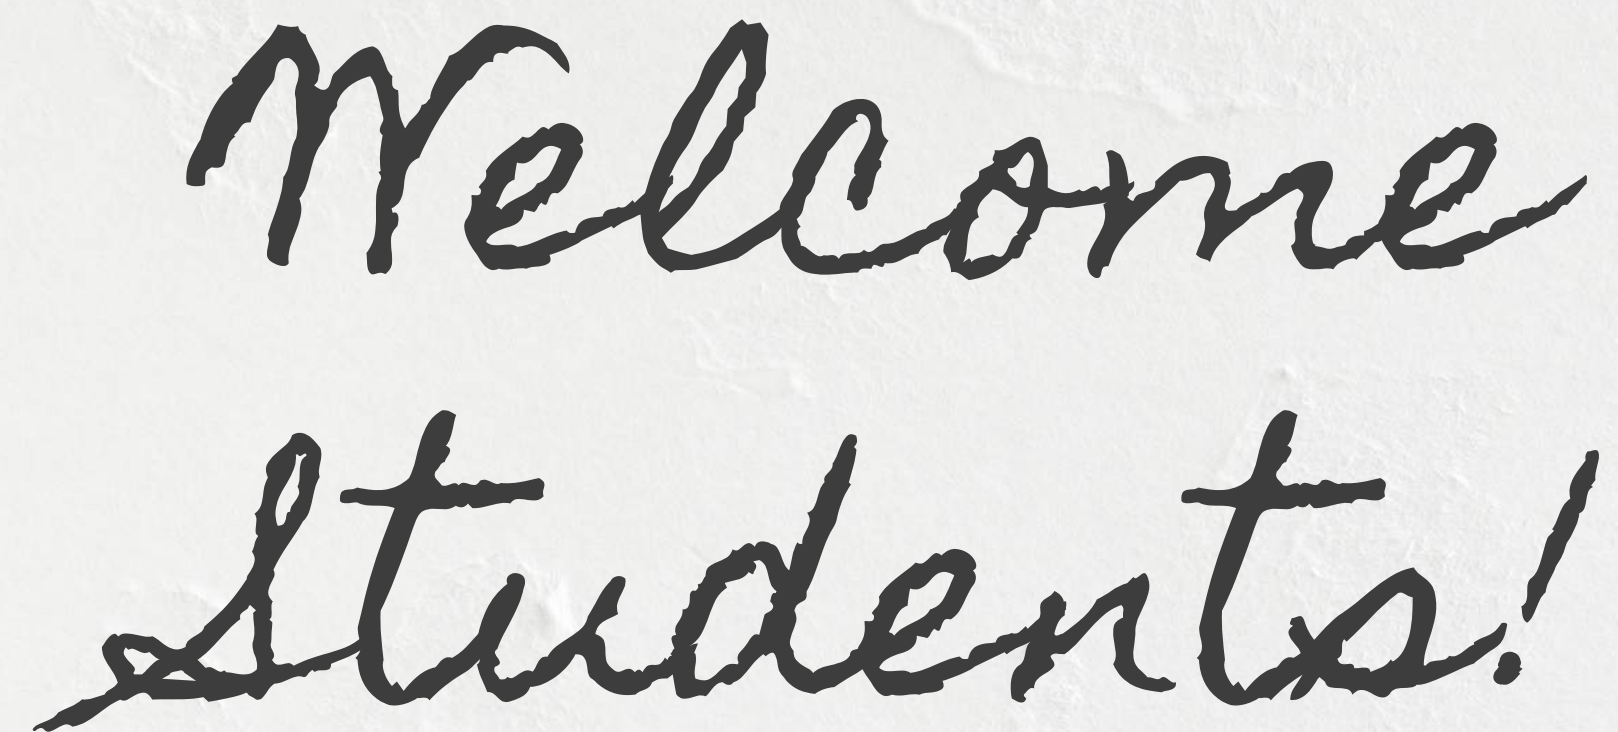 Welcome
Students!